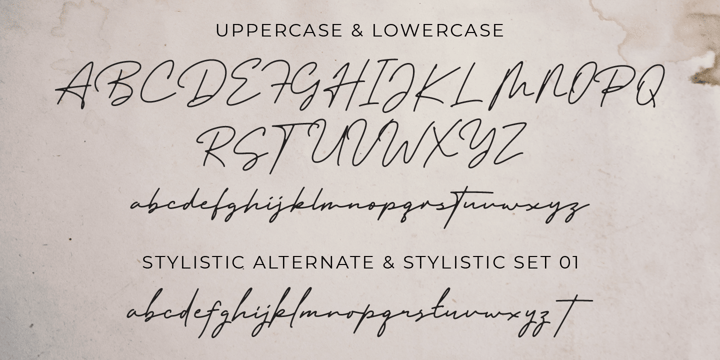 UPPERCASE & LOWERCASE
ABCDEFGHIJKLMNOPQ
RSTUVWXYZ
abcdefghijklmnopqrstuvwxyz
STYLISTIC ALTERNATE & STYLISTIC SET 01
abcdefghijklmnopqrstuvwxyzT